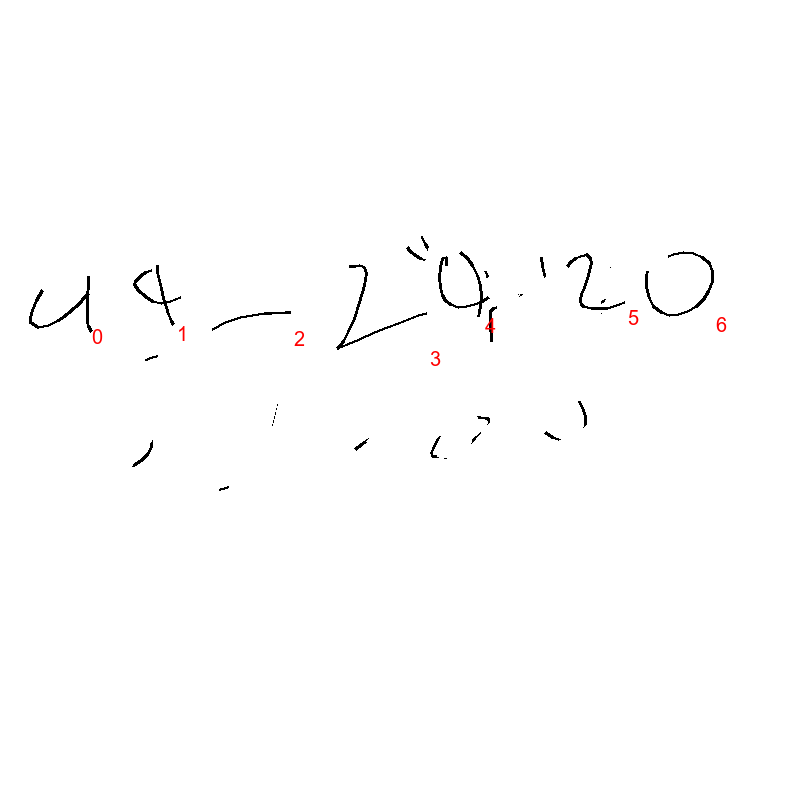 44—2420
0 1 2 3 4 5 6